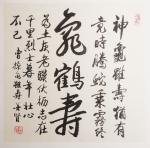 神龜雖壽猶有
竟時騰蛇乘霧終
龜鶴壽
為土灰老驥伏櫪志在
千里烈士暮年壯心
不已 曹操龜雖壽